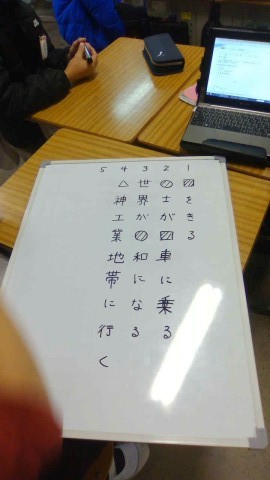 1 ▨をきる
2 ⊘士が▨車に乗る
3 世界が⊘和になる
4 △神工業地帯に行く
5